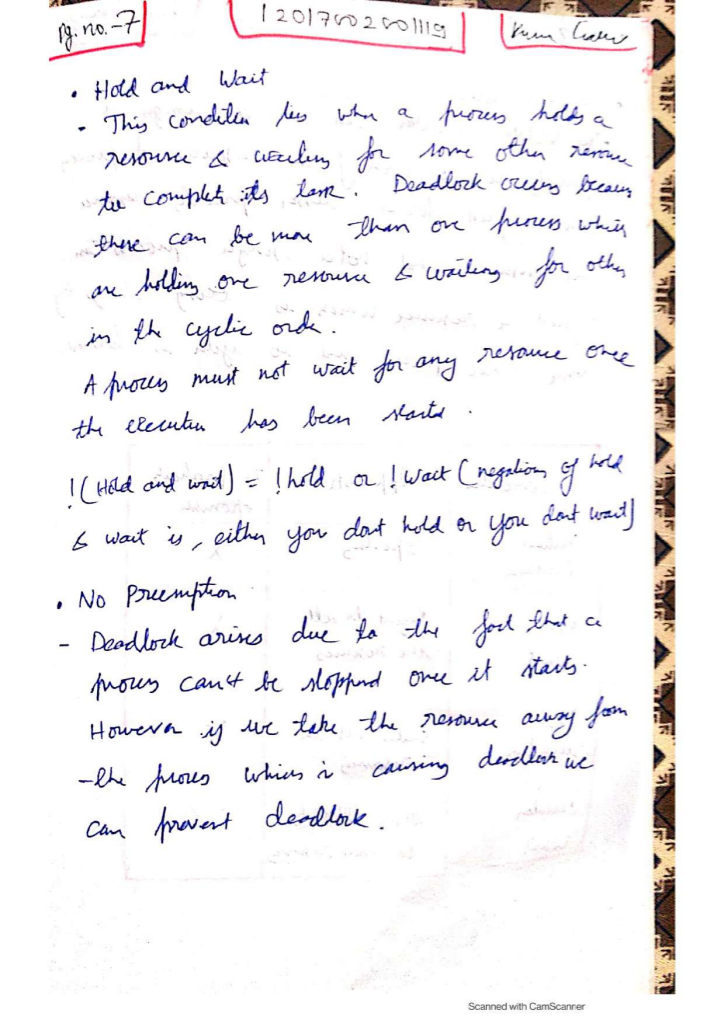 Pg. no. - 7
12017002001119
• Hold and Wait
- This condition lies when a process holds a
resource & waiting for some other resource
to complete its task. Deadlock occurs because
there can be more than one process which
are holding one resource & waiting for other
in the cyclic order.
A process must not wait for any resource once
the execution has been started.
!(Hold and wait) = !hold or !wait (negation of hold
& wait is, either you dont hold or you dont wait)
• No Preemption
- Deadlock arises due to the fact that a
process can't be stopped once it starts.
However if we take the resource away from
the process which is causing deadlock we
can prevent deadlock.
Scanned with CamScanner